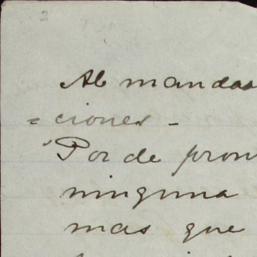 2
Al mandas
= ciones -
Por de pron
ninguna
mas que